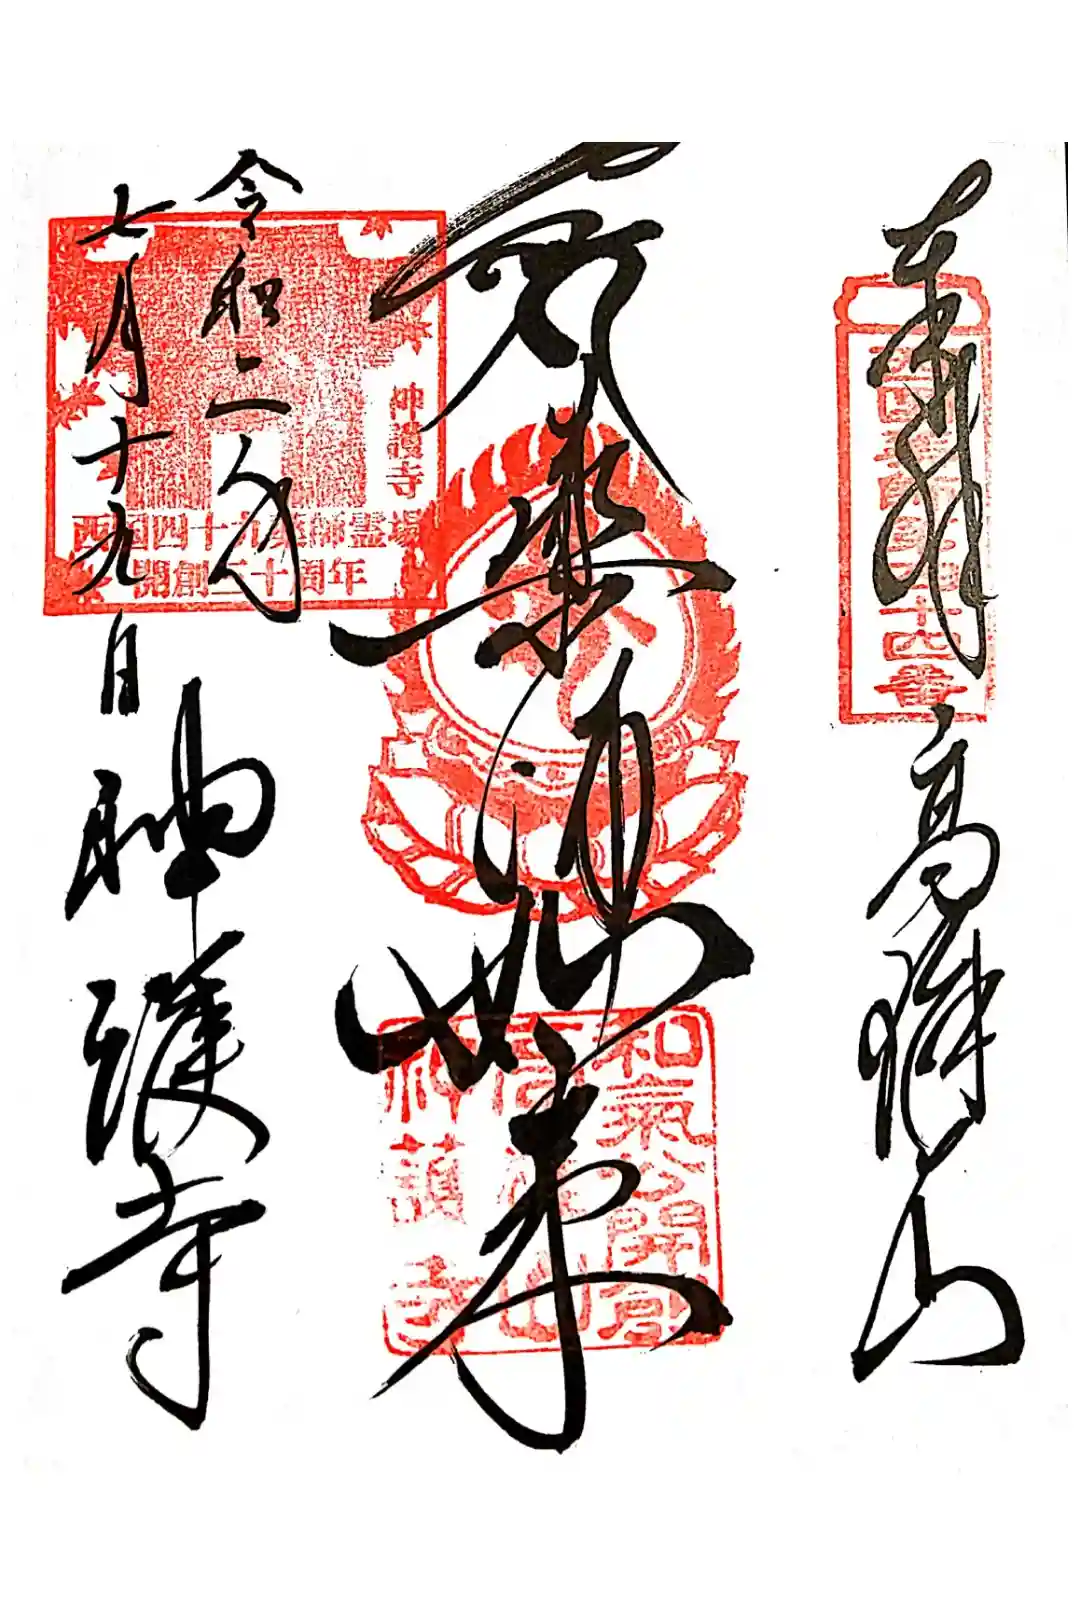 奉拝
西国薬師第四十四番
高雄山
薬師如来
和氣公開創
高雄山
神護寺
令和二年
七月十九日
神護寺
西国四十九薬師霊場
開創三十周年
神護寺